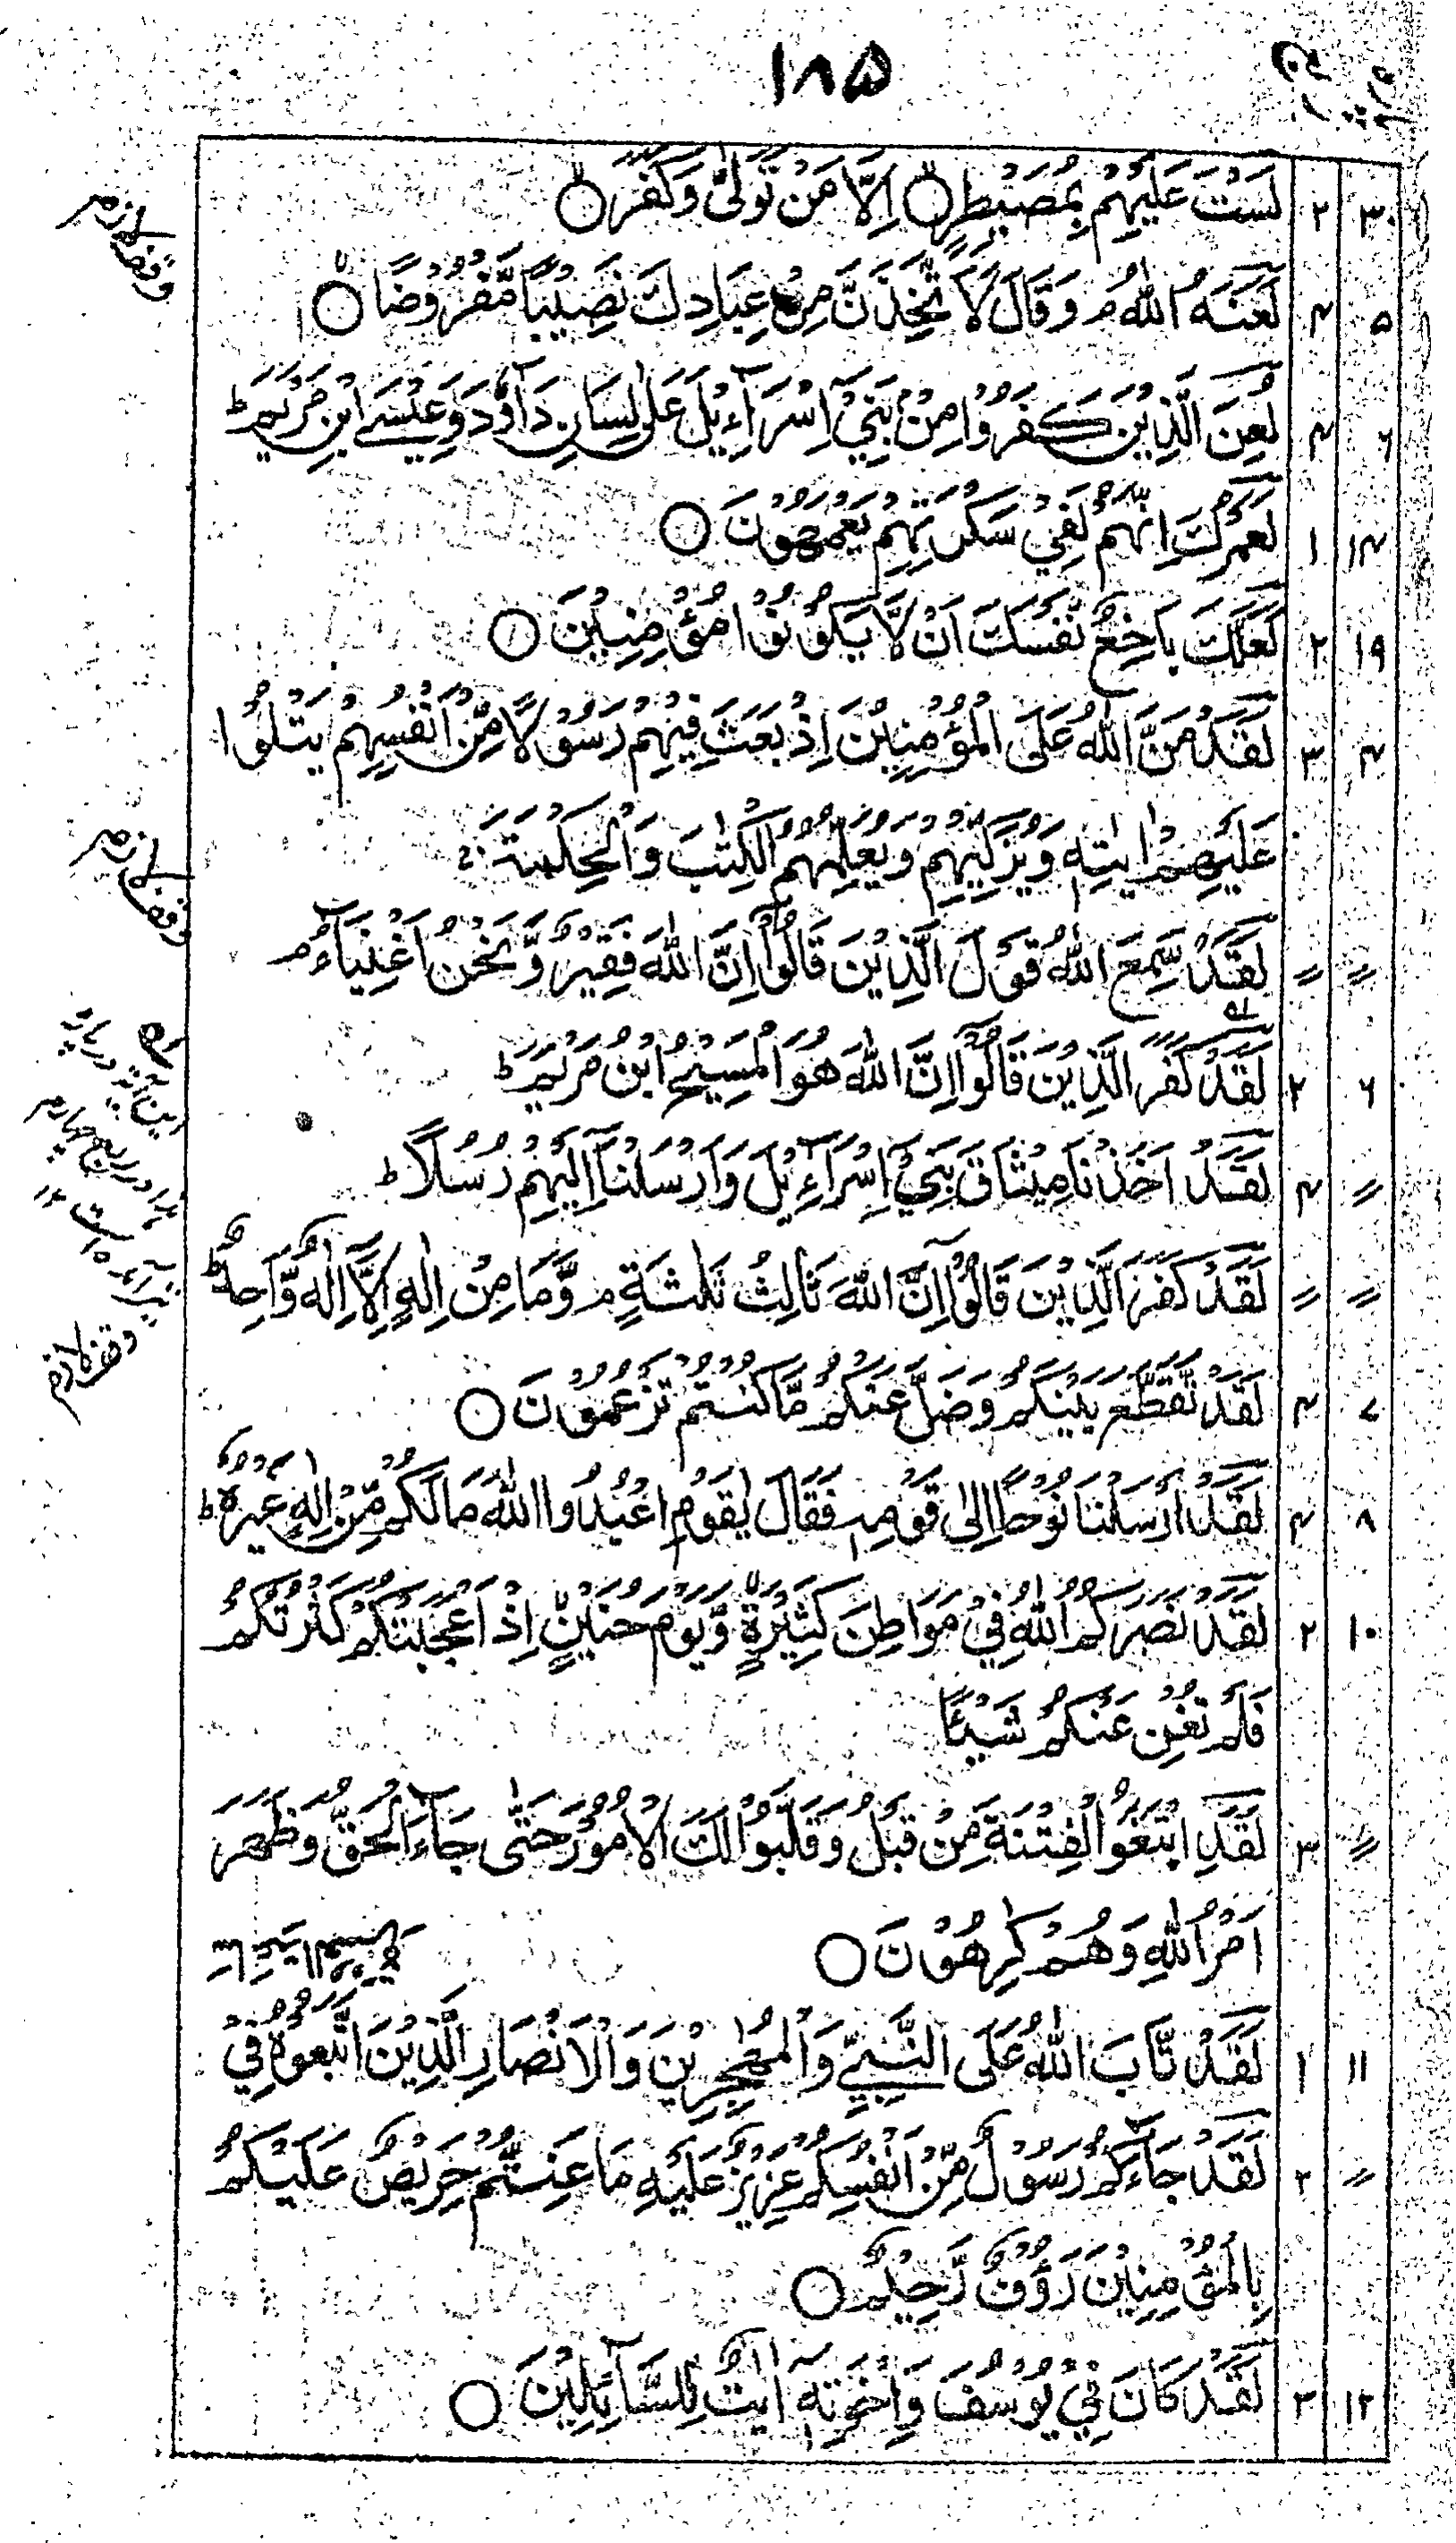 ۱۸۵
۳۰ ۲ لَسْتَ عَلَيْهِمْ بِمُصَۜيْطِرٍ ۙ○ اِلَّا مَنْ تَوَلّٰى وَكَفَرَ ۙ○
وقف لازم
۵ ۴ لَعَنَهُ اللّٰهُ ۘ وَقَالَ لَاَتَّخِذَنَّ مِنْ عِبَادِكَ نَصِيْبًا مَّفْرُوْضًا ۙ○
۶ ۴ لُعِنَ الَّذِيْنَ كَفَرُوْا مِنْۢ بَنِيْٓ اِسْرَآءِيْلَ عَلٰى لِسَانِ دَاوٗدَ وَعِيْسَى ابْنِ مَرْيَمَ ؕ
۱۴ ۱ لَعَمْرُكَ اِنَّهُمْ لَفِيْ سَكْرَتِهِمْ يَعْمَهُوْنَ ○
۱۹ ۲ لَعَلَّكَ بَاخِعٌ نَّفْسَكَ اَنْ لَّا يَكُوْنُوْا مُؤْمِنِيْنَ ○
۴ ۳ لَقَدْ مَنَّ اللّٰهُ عَلَى الْمُؤْمِنِيْنَ اِذْ بَعَثَ فِيْهِمْ رَسُوْلًا مِّنْ اَنْفُسِهِمْ يَتْلُوْا
عَلَيْهِمْ اٰيٰتِهٖ وَيُزَكِّيْهِمْ وَيُعَلِّمُهُمُ الْكِتٰبَ وَالْحِكْمَةَ ۚ
وقف لازم
〃 〃 لَقَدْ سَمِعَ اللّٰهُ قَوْلَ الَّذِيْنَ قَالُوْٓا اِنَّ اللّٰهَ فَقِيْرٌ وَّنَحْنُ اَغْنِيَآءُ ۘ
۶ ۲ لَقَدْ كَفَرَ الَّذِيْنَ قَالُوْٓا اِنَّ اللّٰهَ هُوَ الْمَسِيْحُ ابْنُ مَرْيَمَ ؕ
این آیة در پارہ
در ربع چہارم
نیز آمدہ است ۱۲
〃 ۴ لَقَدْ اَخَذْنَا مِيْثَاقَ بَنِيْٓ اِسْرَآءِيْلَ وَاَرْسَلْنَآ اِلَيْهِمْ رُسُلًا ؕ
〃 〃 لَقَدْ كَفَرَ الَّذِيْنَ قَالُوْٓا اِنَّ اللّٰهَ ثَالِثُ ثَلٰثَةٍ ۘ وَّمَا مِنْ اِلٰهٍ اِلَّآ اِلٰهٌ وَّاحِدٌ ؕ
وقف لازم
۷ ۴ لَقَدْ تَّقَطَّعَ بَيْنَكُمْ وَضَلَّ عَنْكُمْ مَّا كُنْتُمْ تَزْعُمُوْنَ ○
۸ ۴ لَقَدْ اَرْسَلْنَا نُوْحًا اِلٰى قَوْمِهٖ فَقَالَ يٰقَوْمِ اعْبُدُوا اللّٰهَ مَا لَكُمْ مِّنْ اِلٰهٍ غَيْرُهٗ ؕ
۱۰ ۲ لَقَدْ نَصَرَكُمُ اللّٰهُ فِيْ مَوَاطِنَ كَثِيْرَةٍ ۙ وَّيَوْمَ حُنَيْنٍ ۙ اِذْ اَعْجَبَتْكُمْ كَثْرَتُكُمْ
فَلَمْ تُغْنِ عَنْكُمْ شَيْئًا
〃 ۳ لَقَدِ ابْتَغَوُا الْفِتْنَةَ مِنْ قَبْلُ وَقَلَّبُوْا لَكَ الْاُمُوْرَ حَتّٰى جَآءَ الْحَقُّ وَظَهَرَ
اَمْرُ اللّٰهِ وَهُمْ كٰرِهُوْنَ ○
۱۱ ۱ لَقَدْ تَّابَ اللّٰهُ عَلَى النَّبِيِّ وَالْمُهٰجِرِيْنَ وَالْاَنْصَارِ الَّذِيْنَ اتَّبَعُوْهُ فِيْ
〃 ۲ لَقَدْ جَآءَكُمْ رَسُوْلٌ مِّنْ اَنْفُسِكُمْ عَزِيْزٌ عَلَيْهِ مَا عَنِتُّمْ حَرِيْصٌ عَلَيْكُمْ
بِالْمُؤْمِنِيْنَ رَءُوْفٌ رَّحِيْمٌ ○
۱۲ ۳ لَقَدْ كَانَ فِيْ يُوْسُفَ وَاِخْوَتِهٖٓ اٰيٰتٌ لِّلسَّآئِلِيْنَ ○